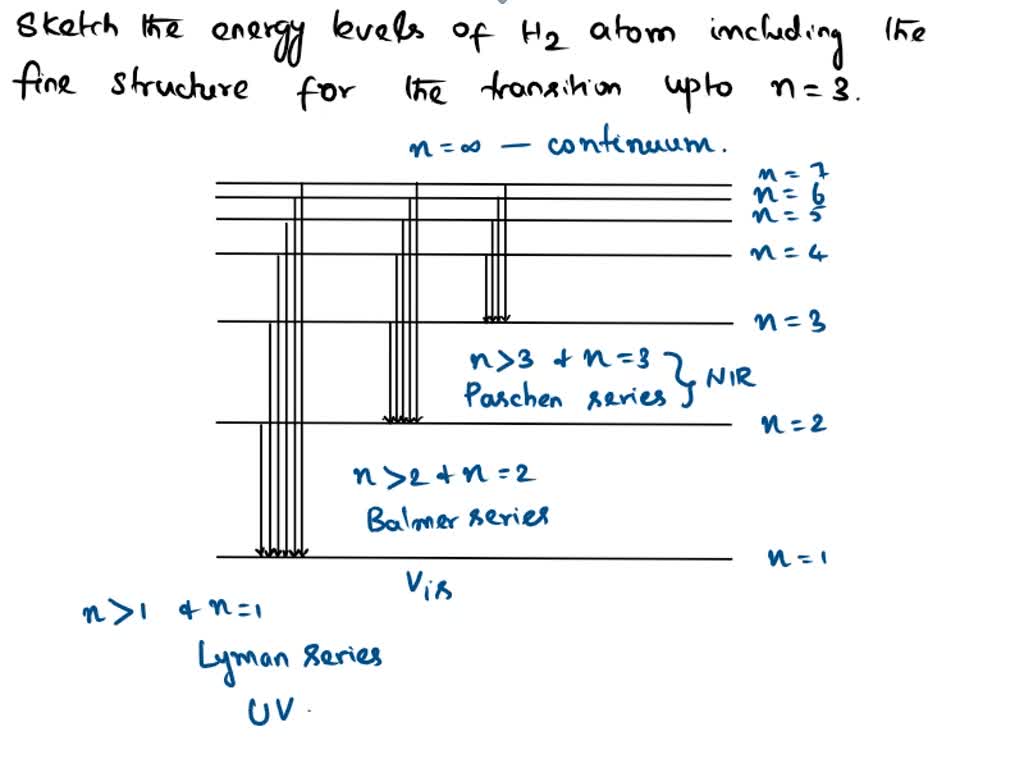 Sketch the energy levels of H2 atom including the
fine structure for the transition upto n = 3.
n = ∞ — continuum.
n = 7
n = 6
n = 5
n = 4
n = 3
n > 3 & n = 3 } NIR
Paschen series
n = 2
n > 2 & n = 2
Balmer series
n = 1
Vis
n > 1 & n = 1
Lyman series
UV.